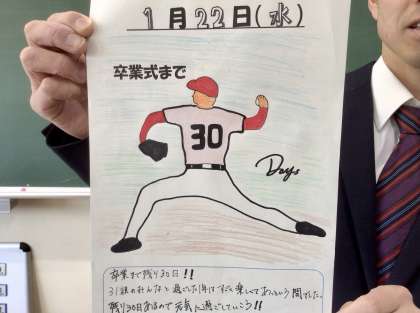 1月22日(水)
卒業式まで
30
Days
卒業まで残り30日!!
31組のみんなと過ごした1年はすごく楽しくてあっという間でした。
残り30日あるので元気に過ごしていこう!!